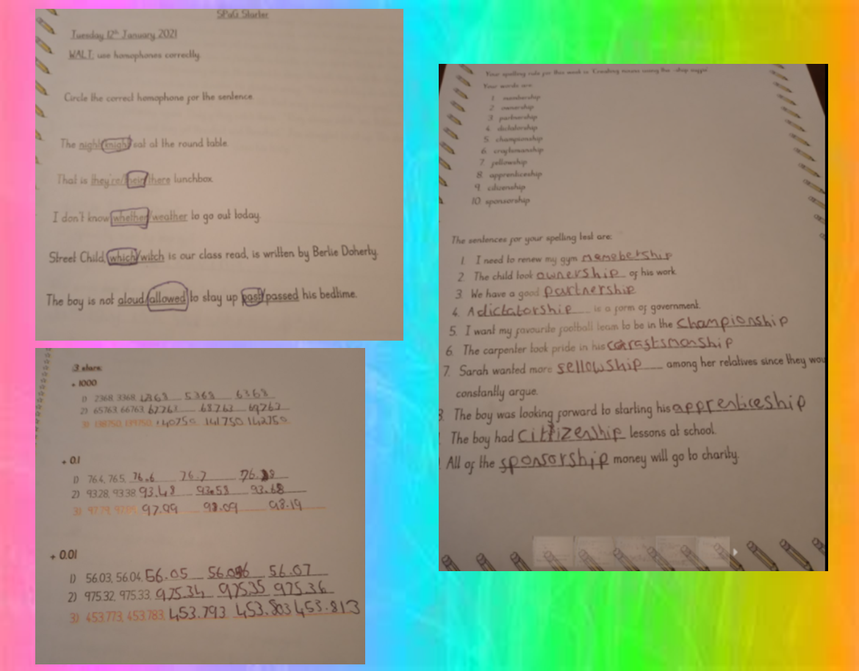 SPaG Starter
Tuesday 12th January 2021
WALT: use homophones correctly.
Circle the correct homophone for the sentence
The night/knight sat at the round table.
That is they're/their/there lunchbox.
I don't know whether/weather to go out today.
Street Child, which/witch is our class read, is written by Berlie Doherty.
The boy is not aloud/allowed to stay up past/passed his bedtime.
+ 1000
1) 2368, 3368, 4368 5368 6368
2) 65763, 66763, 67763 68763 69763
140750 141750 142750
+ 0.1
1) 76.4, 76.5, 76.6 76.7 76.8
2) 93.28, 93.38, 93.48 93.58 93.68
3) 97.79, 97.89, 97.99 98.09 98.19
+ 0.01
1) 56.03, 56.04, 56.05 56.06 56.07
2) 975.32, 975.33, 975.34 975.35 975.36
3) 453.773, 453.783, 453.793 453.803 453.813
Your spelling rule for this week is: Creating nouns using the -ship suffix
Your words are:
1. membership
2. ownership
3. partnership
4. dictatorship
5. championship
6. craftsmanship
7. fellowship
8. apprenticeship
9. citizenship
10. sponsorship
The sentences for your spelling test are:
1. I need to renew my gym
2. The child took ownership of his work.
3. We have a good partnership
4. A dictatorship is a form of government.
5. I want my favourite football team to be in the championship
6. The carpenter took pride in his
7. Sarah wanted more sellowship among her relatives since they wou
constantly argue.
The boy was looking forward to starting his apprenticeship
The boy had citizenship lessons at school.
All of the sponsorship money will go to charity.